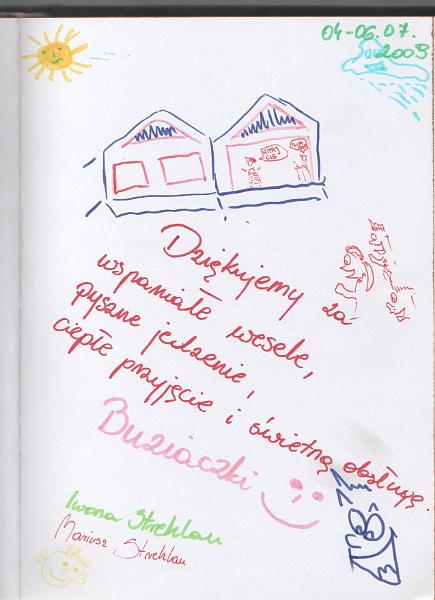 04-06.07.
2009
Dziękujemy za
wspaniałe wesele,
pyszne jedzenie!
ciepłe przyjęcie i świetną obsługę.
Buziaczki
Iwona Strehlau
Mariusz Strehlau